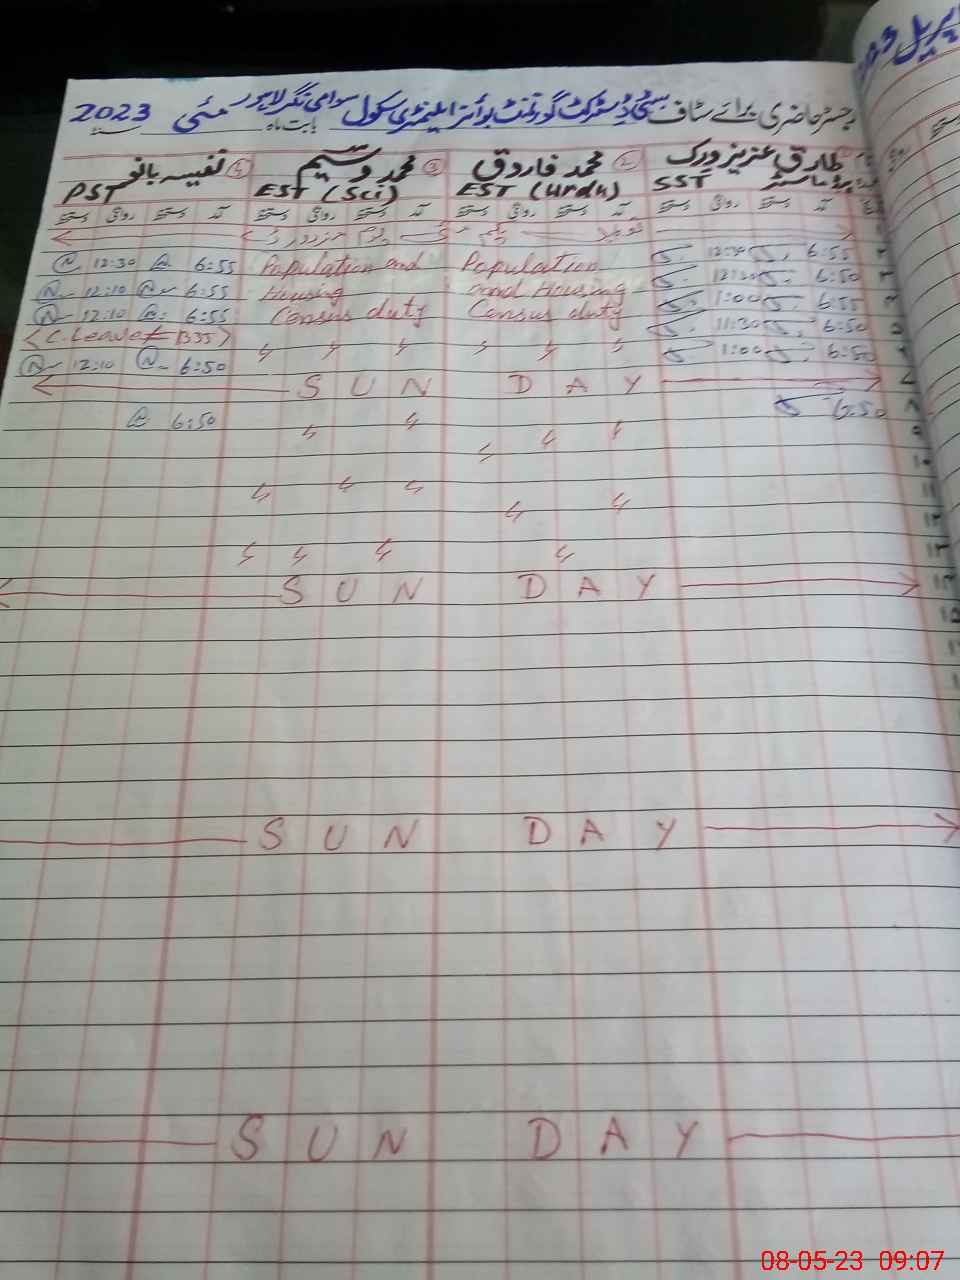 اپریل
رجسٹر حاضری برائے سٹاف سٹی ڈسٹرکٹ گورنمنٹ بوائز ایلیمنٹری سکول سوامی نگر لاہور بابت ماہ مئی سنہ 2023
طارق عزیز ورک ② محمد فاروق ③ محمد وسیم ④ نفیسہ بانو
ہیڈ ماسٹر SST EST (Urdu) EST (Sci) PST
آمد دستخط روانگی دستخط آمد دستخط روانگی دستخط آمد دستخط روانگی دستخط آمد دستخط روانگی دستخط
تعطیل یکم مئی یوم مزدور
6:55 12:30 Population Population and 6:55 12:30
6:50 12:20 and Housing Housing 6:55 12:10
6:55 1:00 Census duty Census duty 6:55 12:10
6:50 11:30 <C.Leave
6:50 1:00 6:50 12:10
S U N D A Y
6:50 6:50
S U N D A Y
S U N D A Y
S U N D A Y
08-05-23 09:07